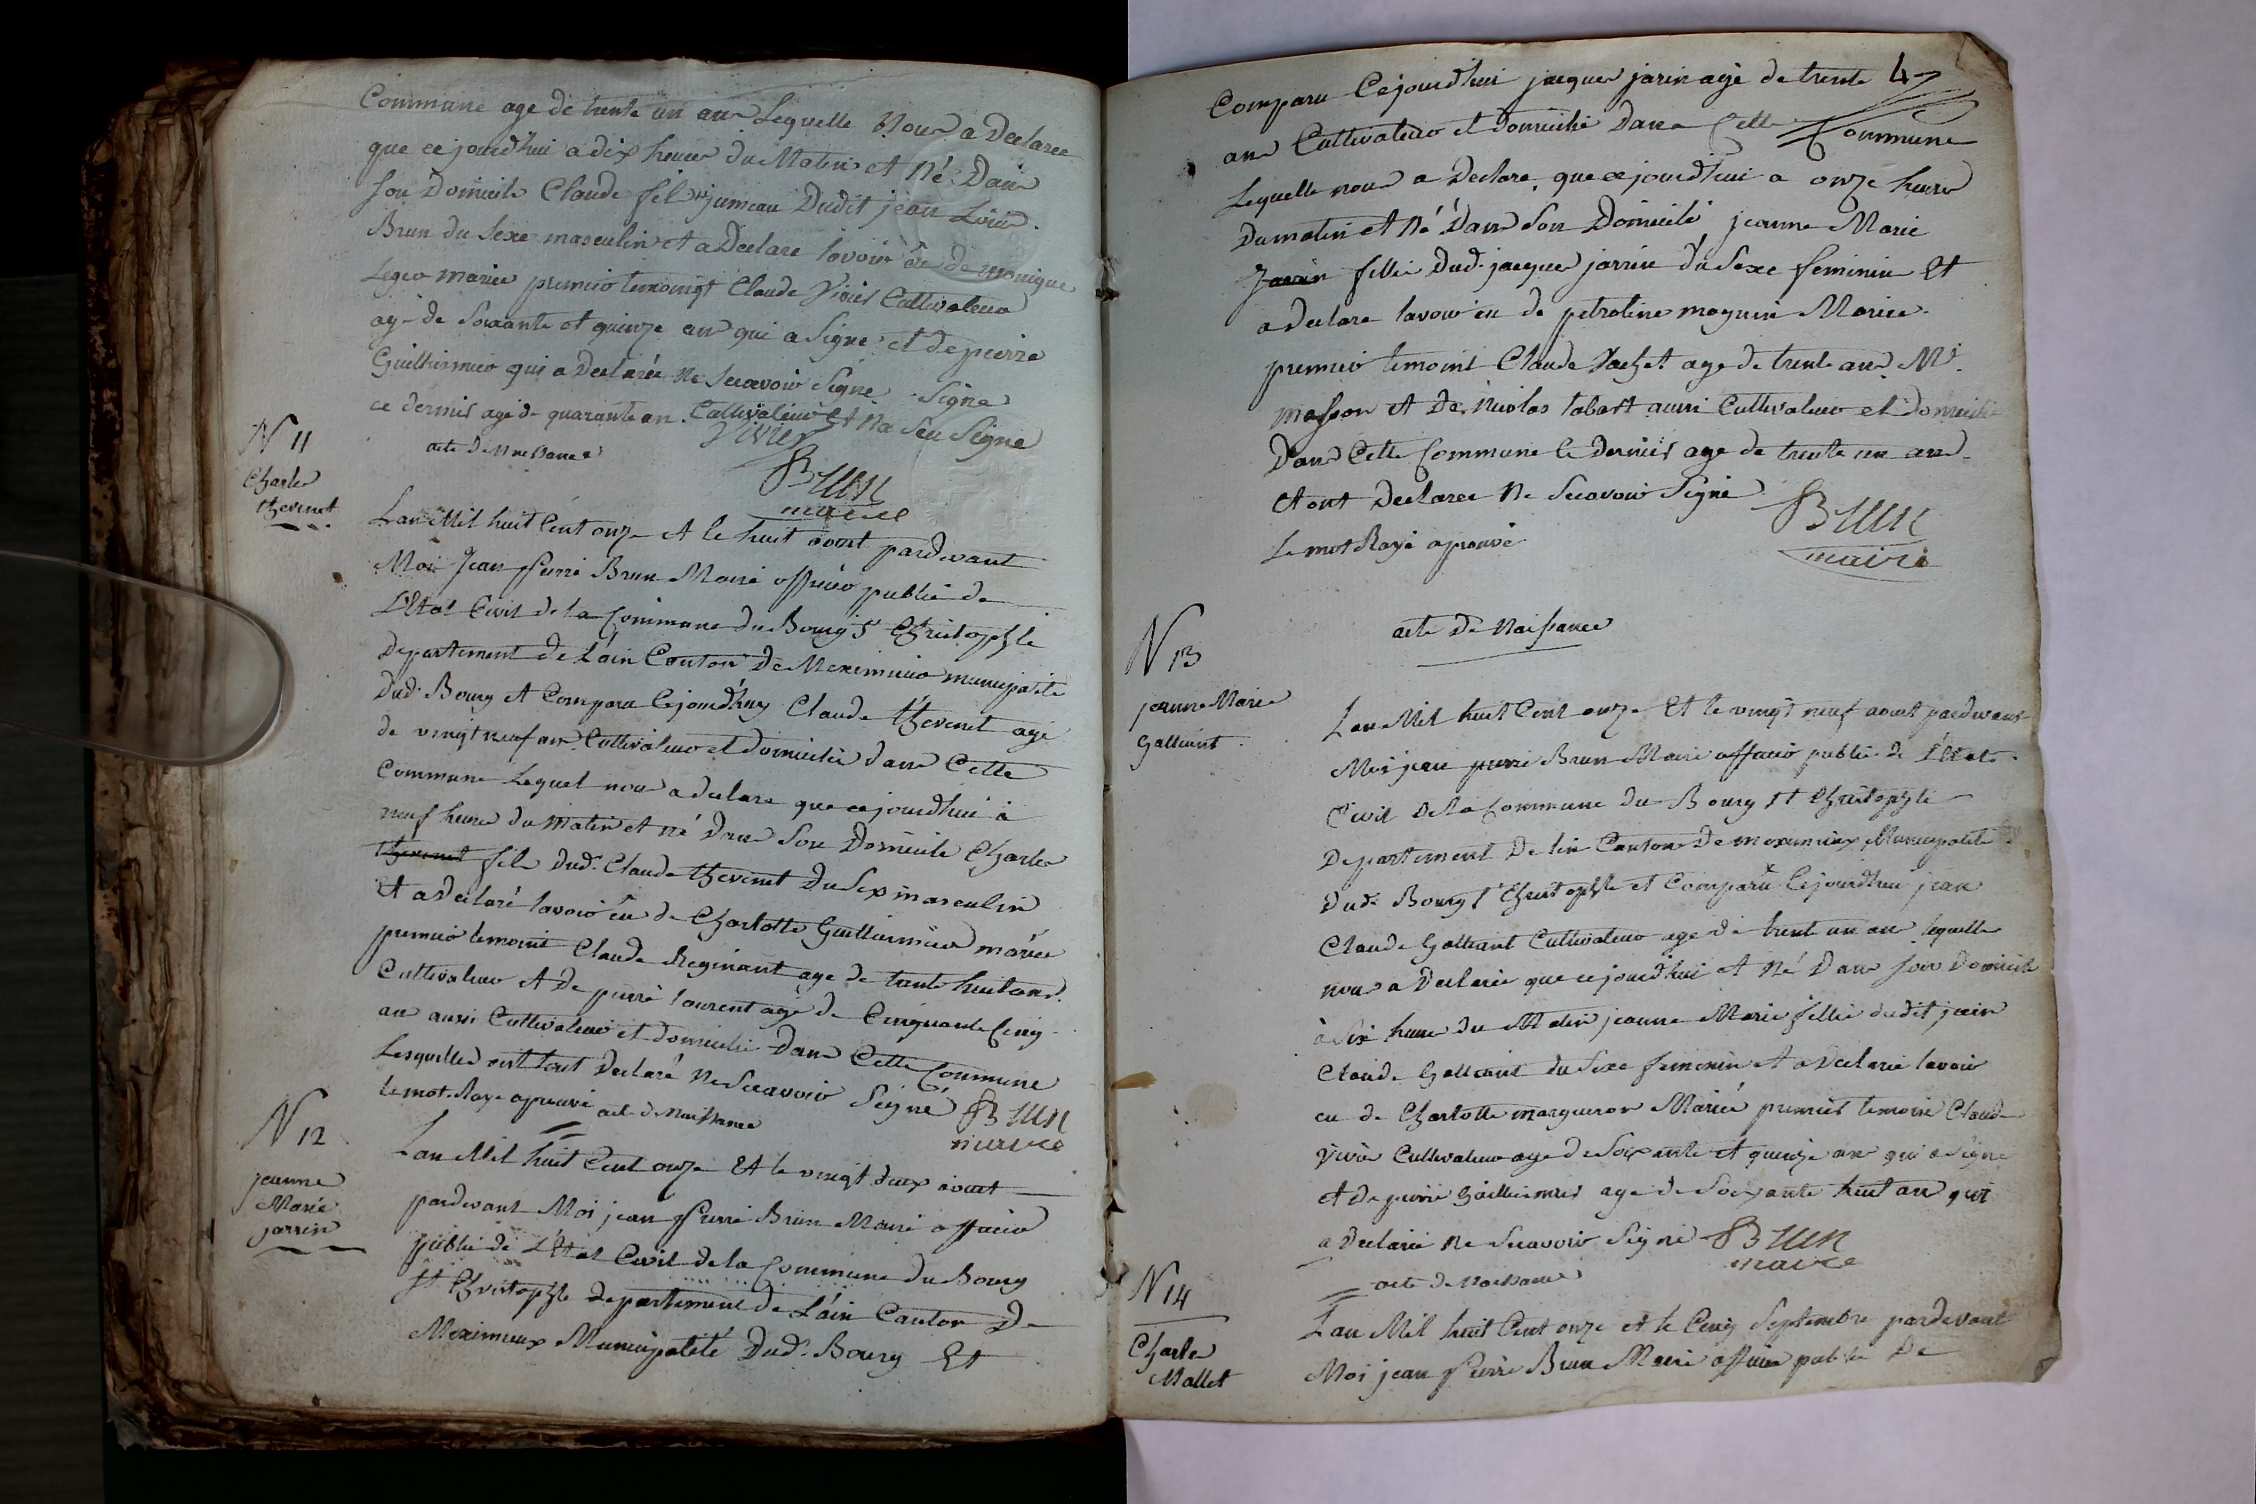 Commune age de trente un ans Lequelle Nous a Declaree
que ce jourdhui a dix heure du Matin et Né Dans
son Domicile Claude fil jumeau Dudit jean Loui
Brun du Sexe masculin et a Declare lavoir eu de monique
Leger marieé premier temoingt Claude Vivier Cultivateur
agé de Soixante et quinze an qui a Signé et de pierre
Guillermier qui a Declarée ne Scavoir Signe Signe
ce dernier agé de quarante an Cultivateur et Na Seu Signe
Vivier
Brun
maire
N 11
Charle
thevenet
acte de Naissance
Lan Mil huit Cent onze et le huit aout pardevant
Moi Jean pierre Brun Maire officier public de
L'Etat Civil de la Commune du Bourg St Christophle
Departement de L'ain Canton De Meximieux municipalité
Dud. Bourg et Comparu Cejourdhuy Claude thevenet agé
de vingt neuf an Cultivateur et domicilié dans Cette
Commune Lequel nous a declare que ce jourdhui à
neuf heure du Matin et né Dans Son Domicile Charle
thevenet fil dud. Claude thevenet du Sex masculin
et a Declaré lavoir eu de Charlotte Guillermier mariée
premier temoint Claude Reginant age de trente huit ans
Cultivateur et De pierre laurent age de Cinquante Cinq
an aussi Cultivateur et domicilié Dans Cette Commune
Lesquelles ont tout Declaré ne Scavoir Signé
le mot Raye aprouvé
Brun
maire
N 12
jeanne
Marie
jarrin
acte de Naissance
Lan Mil huit Cent onze Et le vingt deux aout
pardevant Moi jean pierre Brun Maire officier
public de L'Etat Civil de la Commune du Bourg
St Christophle departement de L'ain Canton De
Meximieux Municipalité Dud. Bourg Et
47
Comparu Cejourdhui jaque jarin agé de trente
an Cultivateur et domicilié Dans Cette Commune
Lequelle nous a Declare que ce jourdhui a onze heure
Du matin et Né Dans Son Domicile jeanne Marie
Jarrin fille Dud. jaque jarrin du Sexe feminin Et
a declare lavoir eu de petroline magnin Mariee
premier temoint Claude Vachet age de trente ans Mr.
Masson et De Nicolas tabart aussi Cultivateur et Domicilié
Dans Cette Commune le dernier age de trente un an
et ont Declaree Ne Scavoir Signé
Le mot Rayé aprouvé
Brun
maire
N 13
jeanne Marie
Galliant
acte De Naissance
Lan Mil huit Cent onze Et le vingt neuf aout pardevant
Moi jean pierre Brun Maire officier public de l'Etat
Civil De la Commune du Bourg St Christophle
Departement De lin Canton De meximieux Municipalité
Dud. Bourg St Christophle et Comparu Cejourdhui jean
Claude Galliant Cultivateur age de trente un an lequelle
nous a Declarée que ce jourdhui et Né Dans Son Domicile
à Six heure du Matin jeanne Marie fille dudit jean
Claude Galliant du Sexe feminin et a Declarée lavoir
eu de Charlotte margueron Mariée premier temoin Claude
Vivier Cultivateur age de Soixante et quinze an qui a Signe
et De pierre Guillermier age de Soixante huit an qui
a Declarée Ne Scavoir Signé
Brun
maire
N 14
Charle
Mallet
acte de Naissance
Lan Mil huit Cent onze et le Cinq Septembre pardevant
Moi jean pierre Brun Maire officier public De